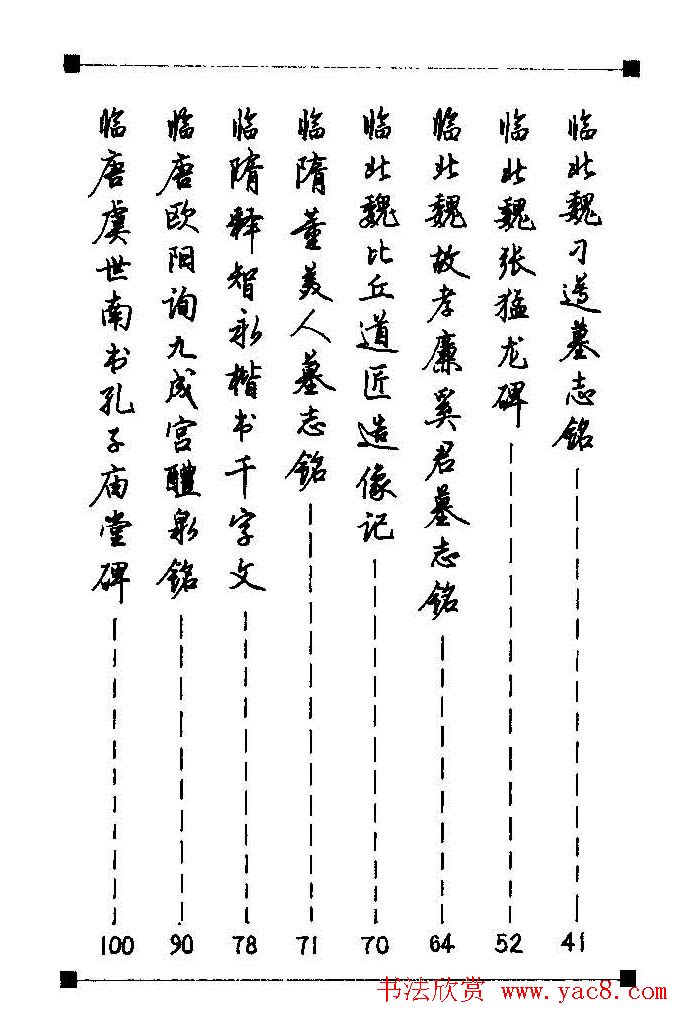 临北魏刁遵墓志铭 41
临北魏张猛龙碑 52
临北魏故孝廉奚君墓志铭 64
临北魏比丘道匠造像记 70
临隋董美人墓志铭 71
临隋释智永楷书千字文 78
临唐欧阳询九成宫醴泉铭 90
临唐虞世南书孔子庙堂碑 100
书法欣赏 www.yac8.com